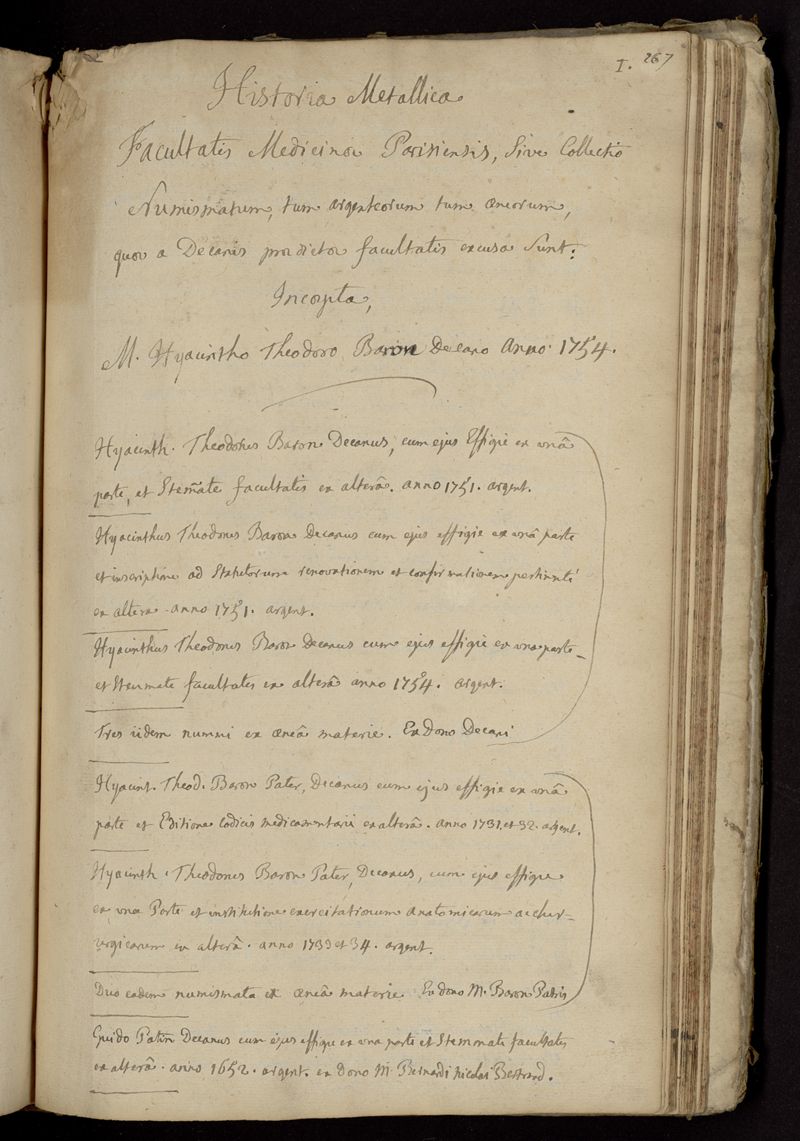 I. 267
Historia Metallica
Facultatis Medicinæ Parisiensis, sive Collectio
Numismatum, tum argenteorum tum æneorum,
quæ a Decanis prædictæ facultatis excusa sunt:
Incœpta,
M. Hyacintho Theodoro Baron Decano Anno 1754.
Hyacinth. Theodorus Baron Decanus, cum ejus Effigie ex unâ
parte, et Stem̃ate facultatis ex alterâ. anno 1751. argent.
Hyacinthus Theodorus Baron Decanus cum ejus effigie ex unâ parte
et inscriptione ad Statutorum renovationem et confirmationem pertinente
ex altera anno 1751. argent.
Hyacinthus Theodorus Baron Decanus cum ejus effigie ex una parte
et Stemmate facultatis ex alterâ anno 1754. argent.
Tres iidem nummi ex æneâ materie. Ex Dono Decani
Hyacint. Theod. Baron Pater, Decanus cum ejus effigie ex unâ
parte et Editione Codicis medicamentarii ex alterâ. anno 1731. et 32. argent.
Hyacinth. Theodorus Baron Pater, Decanus, cum ejus effigie
ex una Parte et institutione exercitationum anatomicarum ac chir-
urgicarum ex alterâ. anno 1733 et 34. argent.
Duo eadem numismata ex æneâ materie Ex dono M. Baron Patris
Guido Patin Decanus cum ejus effigie ex una parte et Stemmate facultatis
ex alterâ. anno 1652. argent. ex Dono M. Bernardi Nicolai Bertrand.